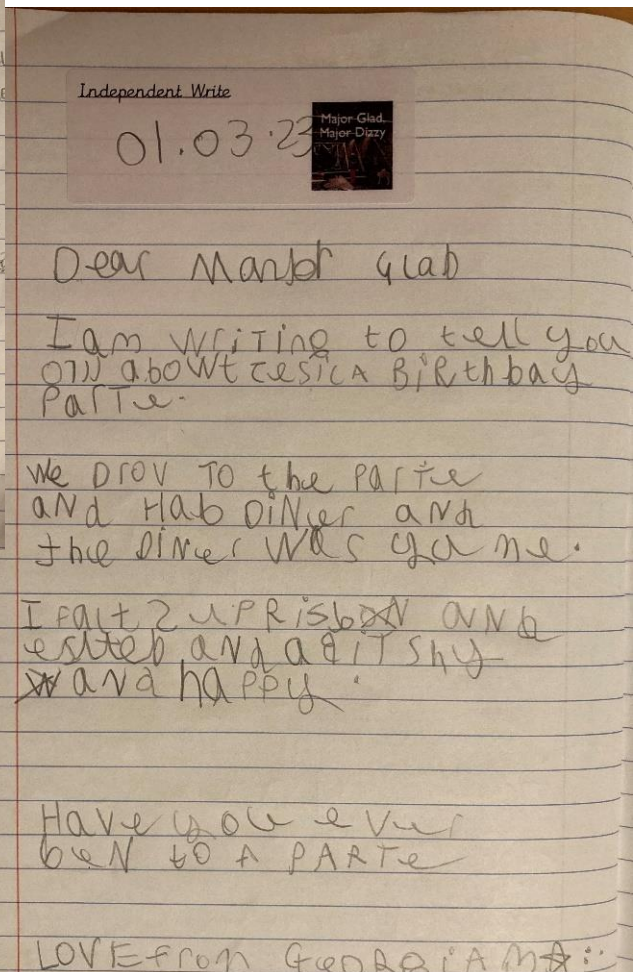 Independent Write
01.03.23
Major Glad,
Major Dizzy
Dear Manjor Glab
I am writing to tell you
om abowt cesica BiRthbay
Parte.
We Drov To the parte
aNd Hab DiNer and
the DiNer was yame.
I falt suPRisb aNd
esiteb aNd a Bit Shy
aNd happy.
Have you ever
beN to A PARTe
LOVE from